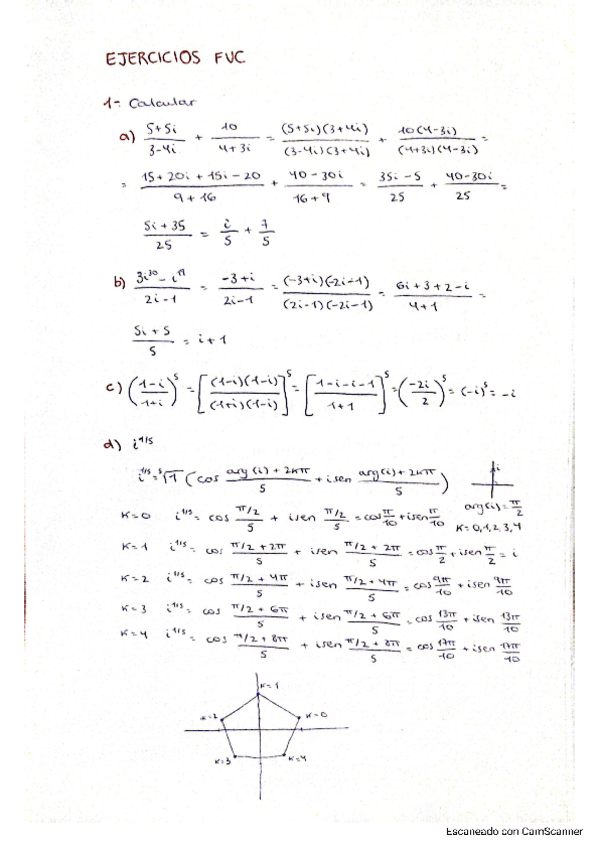 EJERCICIOS FVC
1- Calcular
a) (5+5i)/(3-4i) + 10/(4+3i) = (5+5i)(3+4i)/(3-4i)(3+4i) + 10(4-3i)/(4+3i)(4-3i) =
= (15+20i+15i-20)/(9+16) + (40-30i)/(16+9) = (35i-5)/25 + (40-30i)/25 =
(5i+35)/25 = i/5 + 7/5
b) (3i^30 - i^19)/(2i-1) = (-3+i)/(2i-1) = (-3+i)(-2i-1)/(2i-1)(-2i-1) = (6i+3+2-i)/(4+1) =
(5i+5)/5 = i+1
c) ((1-i)/(1+i))^5 = [(1-i)(1-i)/(1+i)(1-i)]^5 = [(1-i-i-1)/(1+1)]^5 = (-2i/2)^5 = (-i)^5 = -i
d) i^1/5
i^1/5 = ⁵√1 (cos (arg(i)+2kπ)/5 + isen (arg(i)+2kπ)/5)
i
arg(i) = π/2
K=0 i^1/5 = cos (π/2)/5 + isen (π/2)/5 = cos π/10 + isen π/10
K=0,1,2,3,4
K=1 i^1/5 = cos (π/2+2π)/5 + isen (π/2+2π)/5 = cos π/2 + isen π/2 = i
K=2 i^1/5 = cos (π/2+4π)/5 + isen (π/2+4π)/5 = cos 9π/10 + isen 9π/10
K=3 i^1/5 = cos (π/2+6π)/5 + isen (π/2+6π)/5 = cos 13π/10 + isen 13π/10
K=4 i^1/5 = cos (π/2+8π)/5 + isen (π/2+8π)/5 = cos 17π/10 + isen 17π/10
K=1
K=2
K=0
K=3
K=4
Escaneado con CamScanner